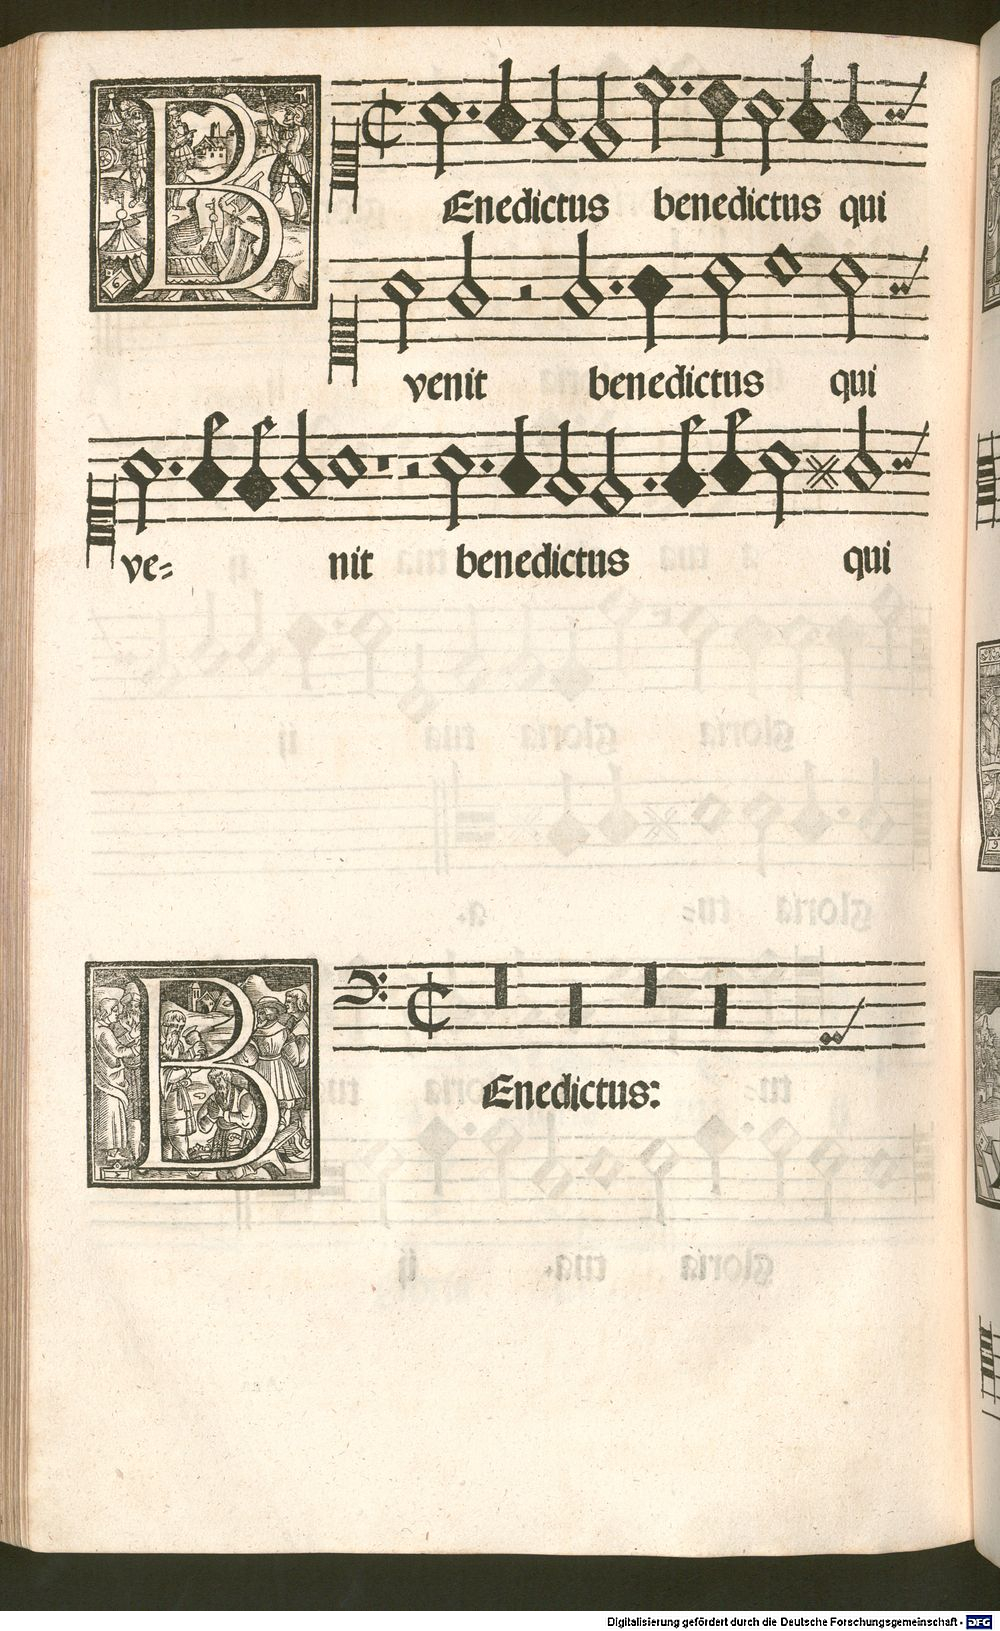 BEnedictus benedictus qui
venit benedictus qui
ve= nit benedictus qui
BEnedictus:
Digitalisierung gefördert durch die Deutsche Forschungsgemeinschaft - DFG